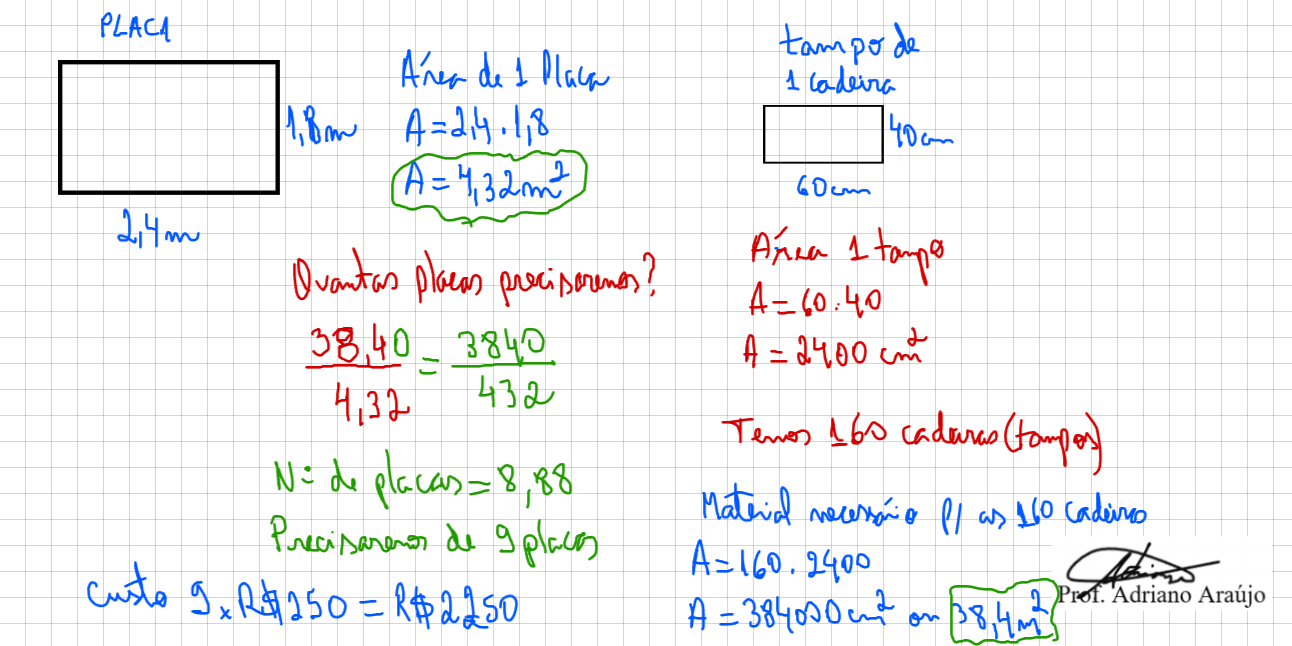 PLACA
1,8m
2,4m
Área de 1 Placa
A=2,4.1,8
A=4,32m²
tampo de
1 cadeira
40cm
60cm
Área 1 tampo
A=60.40
A=2400 cm²
Quantas placas precisaremos?
38,40 = 3840
4,32 432
Temos 160 cadeiras (tampos)
Nº de placas=8,88
Precisaremos de 9 placas
Custo 9 x R$250 = R$2250
Material necessário p/ as 160 cadeiras
A=160.2400
A=384000cm² ou 38,4m²
Prof. Adriano Araújo